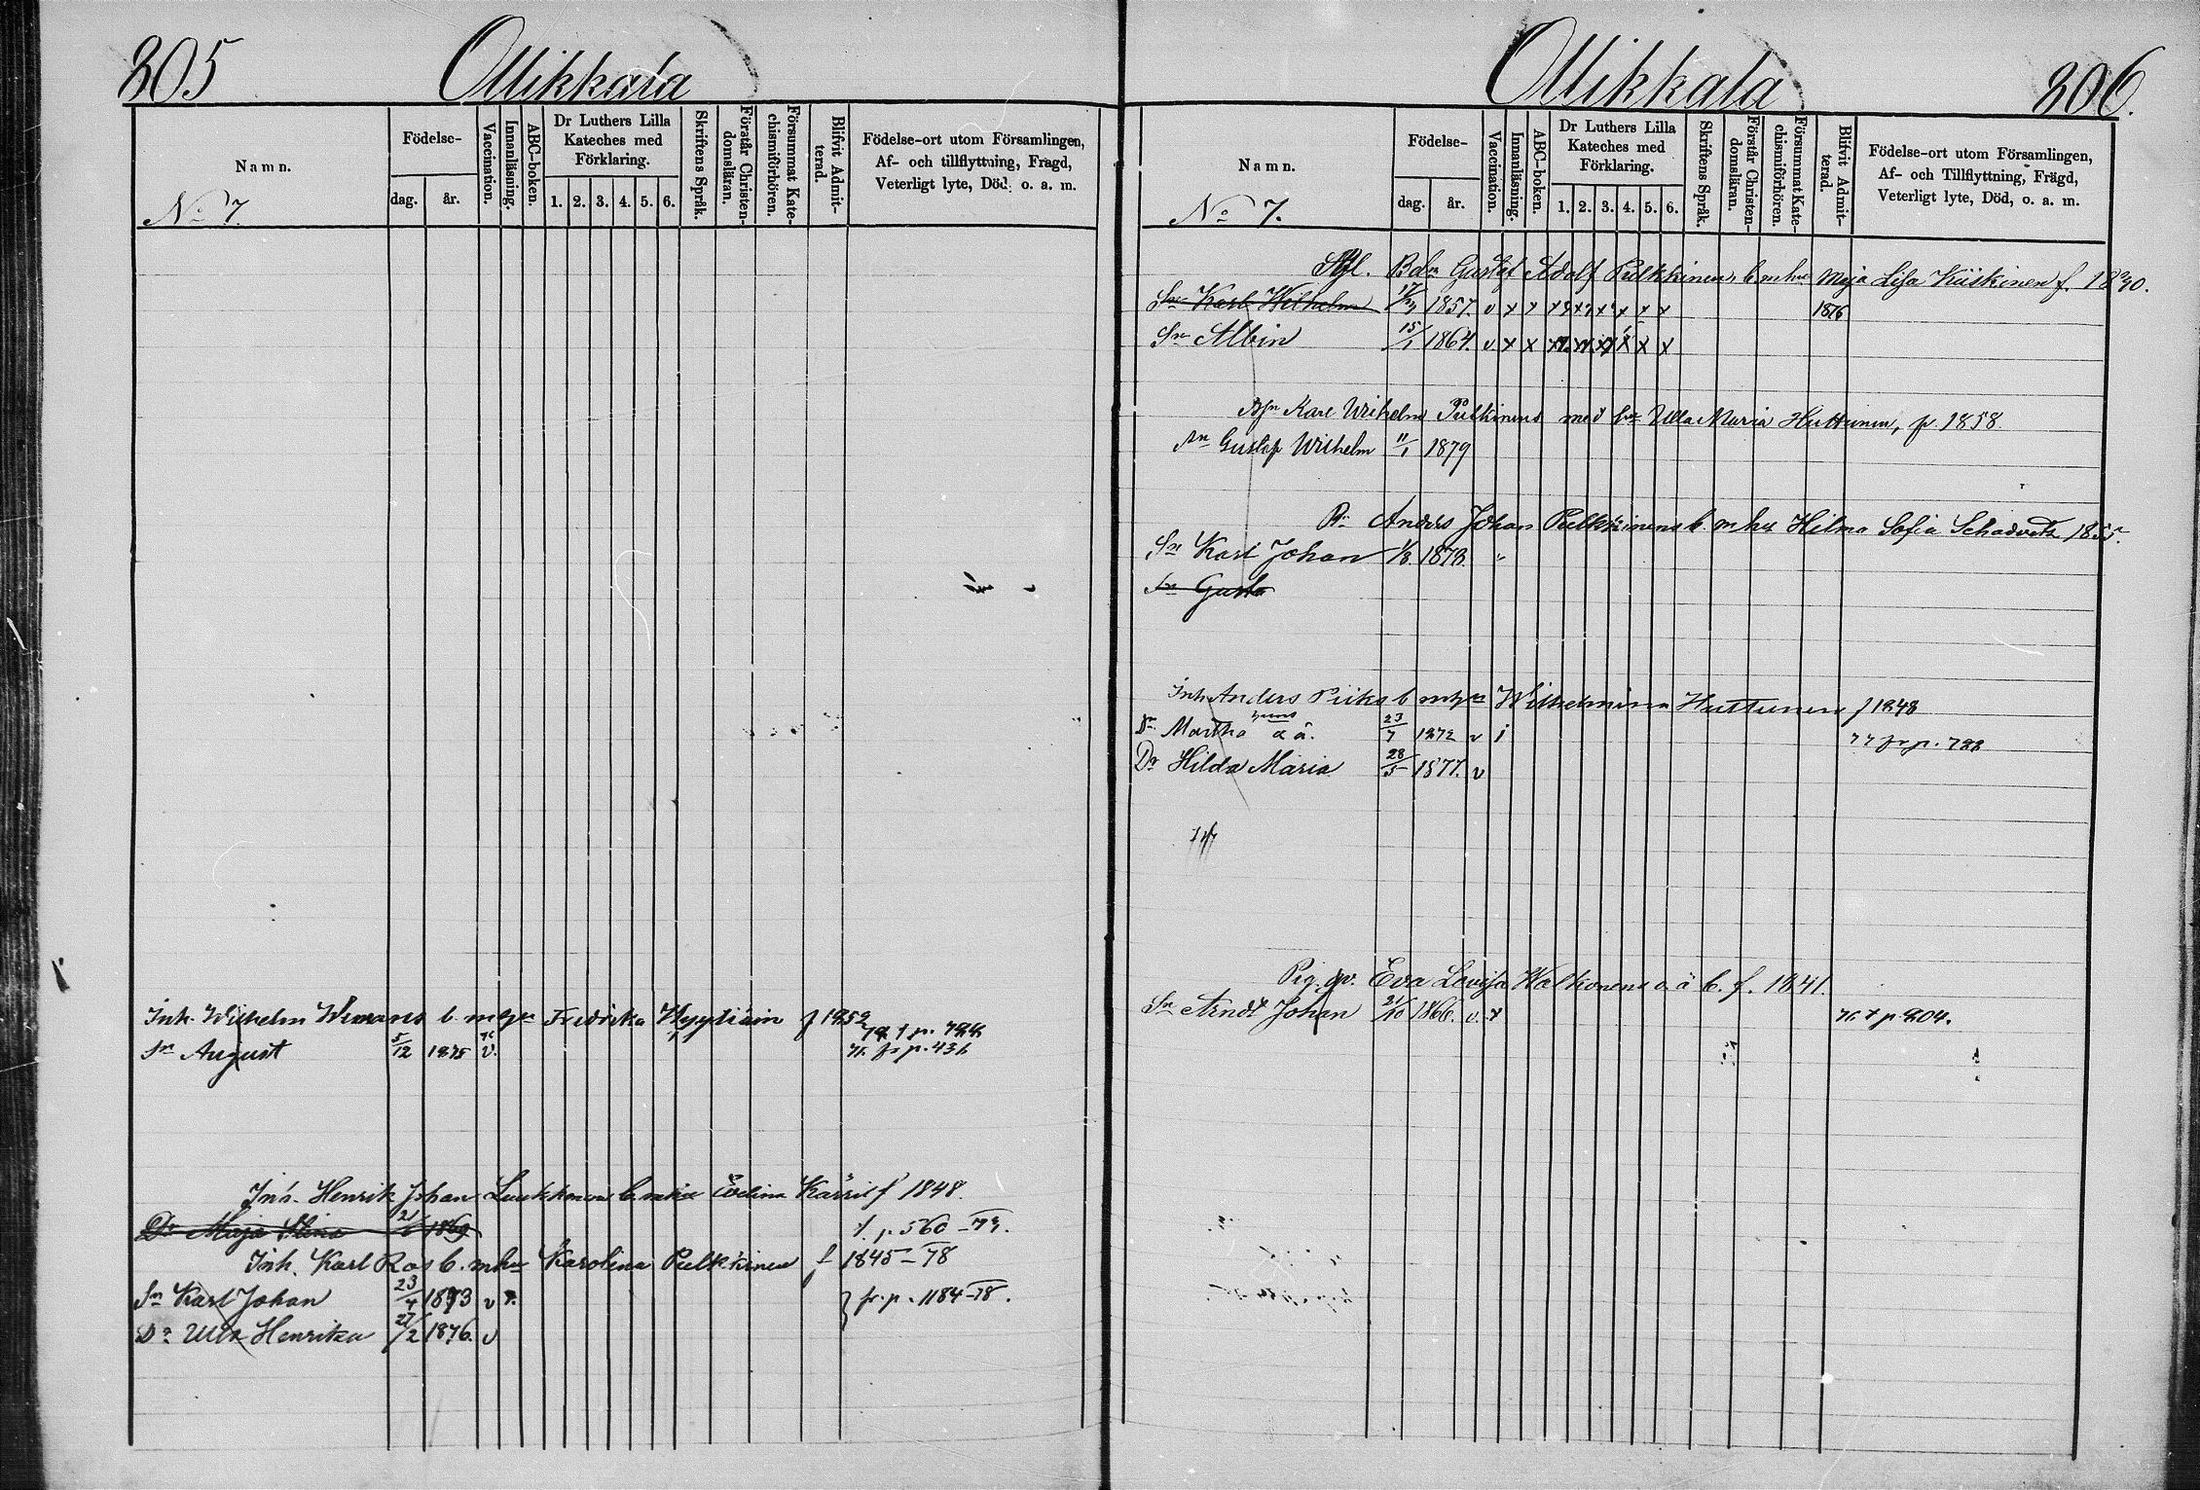 805
Ollikkala
Namn.
Födelse-
dag.
år.
Vaccination.
Innanläsning.
ABC-boken.
Dr Luthers Lilla
Kateches med
Förklaring.
1. 2. 3. 4. 5. 6.
Skriftens Språk.
Förstår Christen-
domsläran.
Försummat Kate-
chismiförhören.
Blifvit Admit-
terad.
Födelse-ort utom Församlingen,
Af- och tillflyttning, Frägd,
Veterligt lyte, Död, o. a. m.
No 7.
Inh. Wilhelm b. m hu Fredrika f 1852
Sn August 5/12 1875 v.
Henrik Johan b. m hu Karri f 1848
Dr Maja Stina 1869 p. 560 - 73.
Inh. Karl Ros b. m hu Karolina Pulkkinen f 1845 - 78
Sn Karl Johan 23/4 1873 v fr. p. 1184-78.
Dr Ulla Henrika 27/2 1876. v
Ollikkala
806.
Namn.
Födelse-
dag.
år.
Vaccination.
Innanläsning.
ABC-boken.
Dr Luthers Lilla
Kateches med
Förklaring.
1. 2. 3. 4. 5. 6.
Skriftens Språk.
Förstår Christen-
domsläran.
Försummat Kate-
chismiförhören.
Blifvit Admit-
terad.
Födelse-ort utom Församlingen,
Af- och Tillflyttning, Frägd,
Veterligt lyte, Död, o. a. m.
No 7.
Gustaf Adolf Pulkkinen, b m hu Maja Lisa Kiiskinen f. 1830.
Sn Karl Wilhelm 1857. v x x 1876
Sn Albin 15/1 1864. v x x
Karl Wilhelm Pulkinens med hu Ulla Maria Huttunen, f. 1858
Sn Gustaf Wilhelm 11/1 1879
Anders Johan Pulkkinens b. m hu Hilma Sofia 1855.
Sn Karl Johan 1/8. 1878.
Sn Gusta
Inh Anders b m hu Wilhelmina Huttunen f 1848
Dr Martha o ä. 23/7 1872 v i
Dr Hilda Maria 28/5 1877. v
Pig. Eva Lovisa Walkonens o. ä b. f. 1841.
Sn Arndt Johan 21/10 1866. v. x p 804.